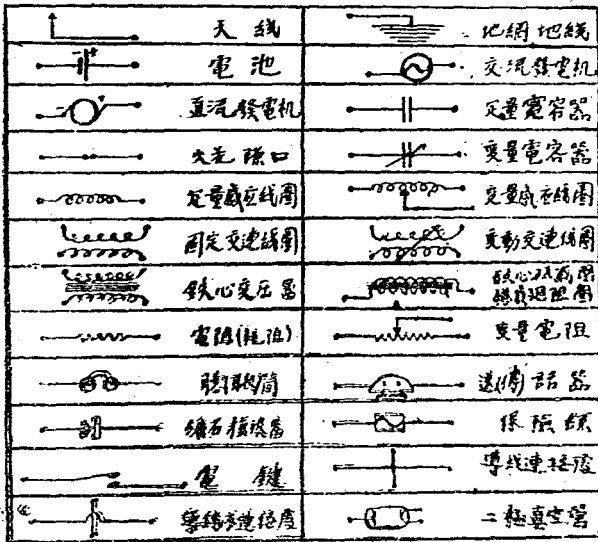 天线
地網地线
電池
交流發電机
直流發電机
定量電容器
火花隙口
变量電容器
定量感应线圈
变量感应线圈
固定交連线圈
变動交連线圈
鉄心变压器
電阻(粍阻)
变量電阻
聴(耿)筒
送(傳)話器
鑛石檢波器
保險絲
電鍵
導线連接處
導线步連接處
二極真空管